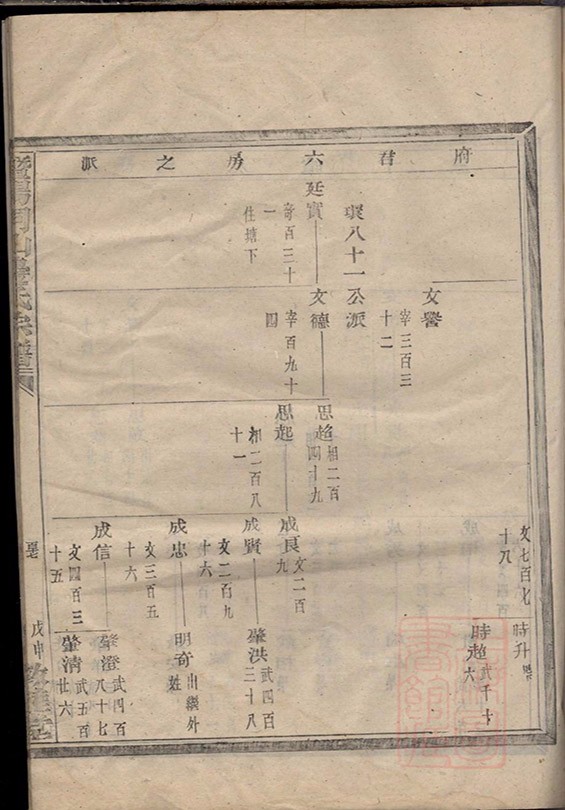 府君六房之派
文七百七
十八
時升
時超
武千十
六
文譽
宰三百三
十二
環八十一公派
廷實
奇百三十
一
住塘下
文德
宰百九十
四
思超
相二百
四十九
思起
相二百八
十一
成良
文二百
九
成賢
文二百九
十六
肇洪
武四百
三十八
成忠
文三百五
十六
明奇
出繼外
姓
成信
文四百三
十五
肇澄
武四百
八十七
肇清
武五百
廿六
戊申